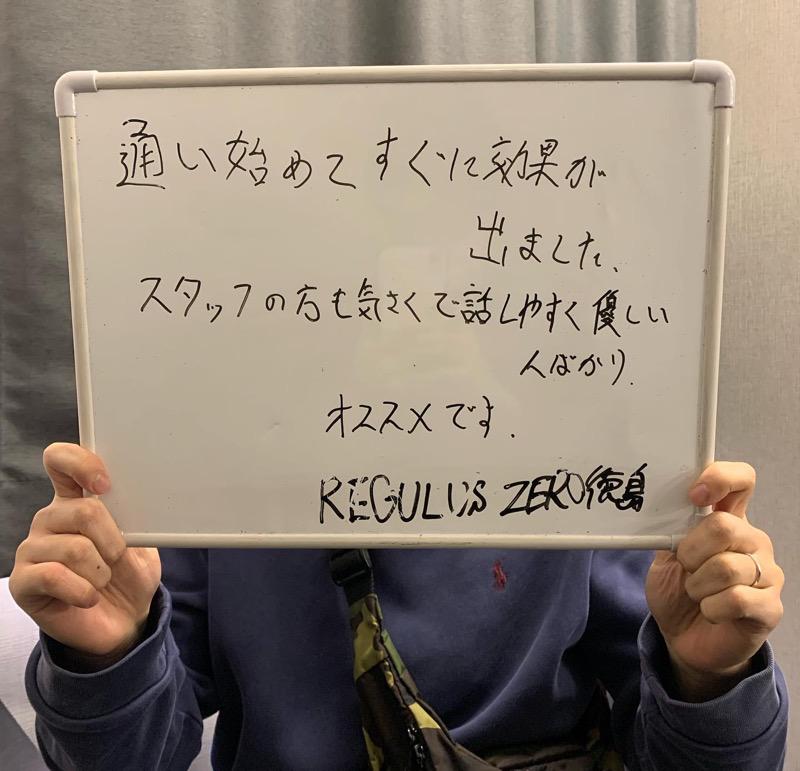 通い始めてすぐに効果が
出ました、
スタッフの方も気さくで話しやすく優しい
人ばかり.
オススメです.
REGULUS ZERO徳島